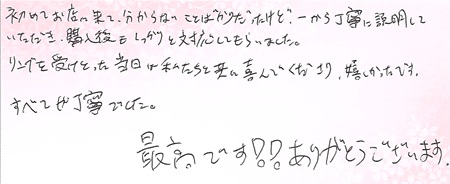 初めてお店に来て、分からないことばかりだったけど、一から丁寧に説明して
いただき、購入後もしっかりと対応してもらいました。
リングを受けとった当日は私たちと共に喜んでくださり、嬉しかったです。
すべてが丁寧でした。
最高です!!ありがとうございます。